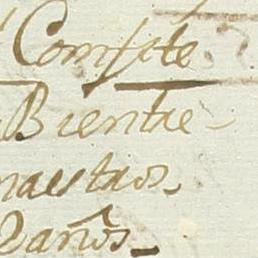 Compte
Bientre
maestros
Daños